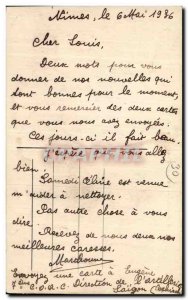 Nîmes, le 6 Mai 1936
Cher Louis,
Deux mots pour vous
donner de nos nouvelles qui
sont bonnes pour le moment,
et vous remercier des deux cartes
que vous nous avez envoyés.
Ces jours-ci il fait beau.
J'espère que vous allez
bien.
Samedi Claire est venue
m'aider à nettoyer.
Pas autre chose à vous
dire.
Recevez de nous deux nos
meilleures caresses.
Envoyez une carte à Eugène
Direction de l'artillerie
Saigon